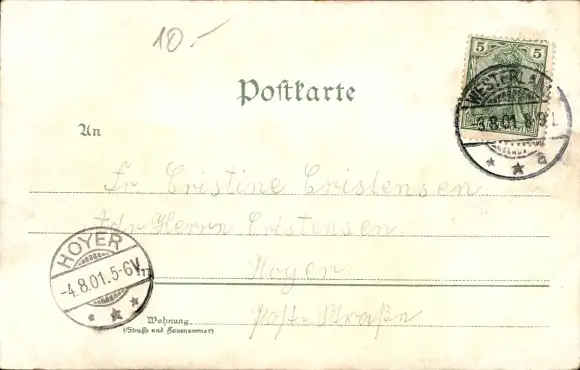 10.-
5 5
Postkarte
WESTERLAND
3.8.01.8-9V.
a
An
Fr Cristine Cristensen
Adr Herrn Cristensen
HOYER
-4.8.01.5-6V.
Hoyer
Wohnung
(Straße und Hausnummer)
Post-Straße